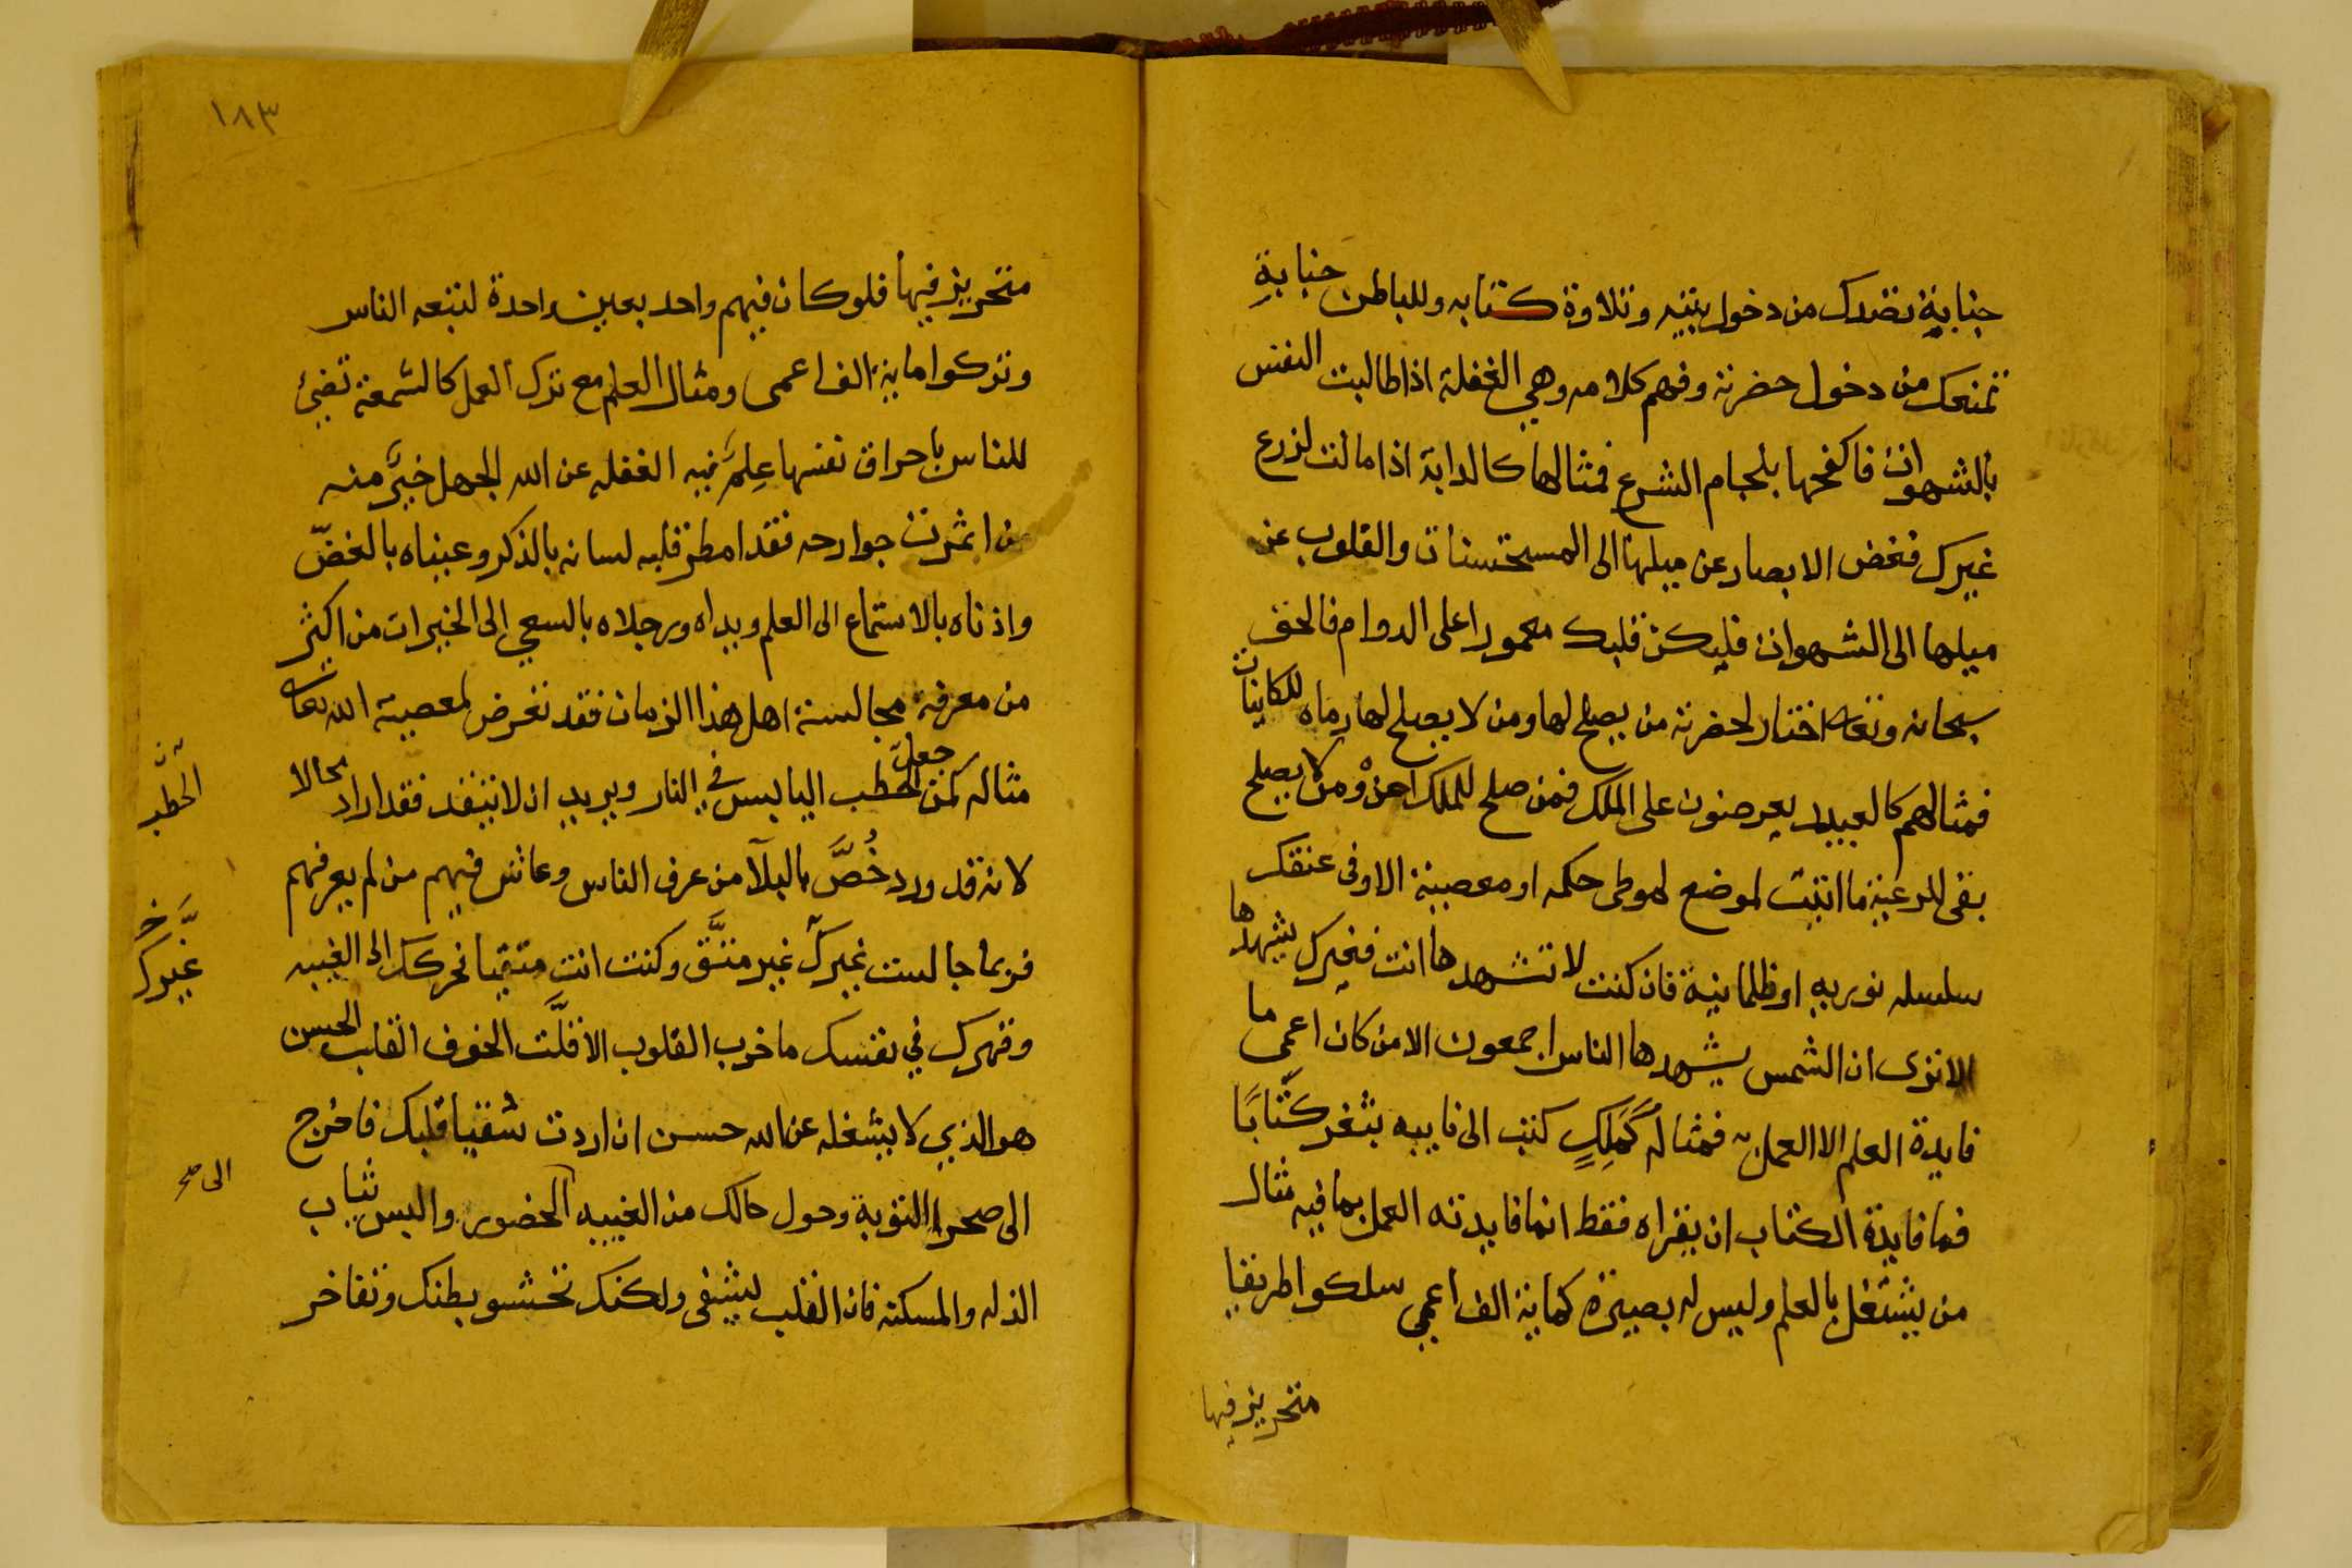 جنابة تصدك من دخول بيته وتلاوة كتابه وللباطن جنابة
تمنعك من دخول حضرته وفهم كلامه وهي الغفلة اذا طالبت النفس
بالشهوات فاكفحها بلجام الشرع فمثالها كالدابة اذا مالت لزرع
غيرك فغض الابصار عن ميلها الى المستحسنات والقلوب عن
ميلها الى الشهوات فليكن قلبك معمورا على الدوام فالحق
سبحانه وتعالى اختار لحضرته من يصلح لها ومن لا يصلح لها رماه للكاينات
فمثالهم كالعبيد يعرضون على الملك فمن صلح للملك اعز ومن لا يصلح
بقى للرعية ما اتيت لموضع لهو حكمه او معصية الا وفى عنقك
سلسله نوريه او ظلمانية فان كنت لا تشهدها انت فغيرك يشهدها
الا ترى ان الشمس يشهدها الناس اجمعون الا من كان اعمى ما
فايدة العلم الا العمل به فمثاله كملك كتب الى نايبه بثغر كتابا
فما فايدة الكتاب ان يقراه فقط انما فايدته العمل بما فيه مثال
من يشتغل بالعلم وليس له بصيرة كماية الف اعمى سلكوا طريقا
متحريز فيها
١٨٣
متحريز فيها فلو كان فيهم واحد بعين واحدة لتبعه الناس
وتركوا ماية الف اعمى ومثال العلم مع ترك العمل كالشمعة تضيئ
للناس باحراق نفسها علم فيه الغفله عن الله الجهل خير منه
من اثمرت جوارحه فقد امطر قلبه لسانه بالذكر وعيناه بالغض
واذناه بالاستماع الى العلم ويداه ورجلاه بالسعي الى الخيرات من اكثر
من معرفة مجالسة اهل هذا الزمان فقد تعرض لمعصية الله تعالى
مثاله كمن جعل الحطب اليابس في النار ويريد ان لا يتقد فقد اراد محالا
الحطب
لانه قد ورد خص بالبلآ من عرف الناس وعاش فيهم من لم يعرفهم
فربما جالست غيرك غير متق وكنت انت متقيا فحركك الى الغيبه
غيرك
وقهرك في نفسك ما خرب القلوب الا قلت الخوف القلب الحسن
هو الذي لا يشغله عن الله حسن ان اردت شفيا قلبك فاخرج
الى صحرا التوبة وحول حالك من الغيبه الى الحضور والبس ثياب
الى صح
الذله والمسكنه فان القلب ليشفى ولكنك تحشو بطنك وتفاخر